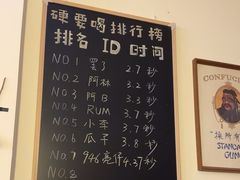 硬要喝排行榜
排名 ID 时间
NO.1 罢了 2.7 秒
NO.2 阿林 3.2 秒
NO.3 阿B 3.3 秒
NO.4 RUM 3.7 秒
NO.5 小李 3.7 秒
NO.6 瓜子 3.8 秒
NO.7 946亮仔 4.37秒
NO.8
CONFUCIUS